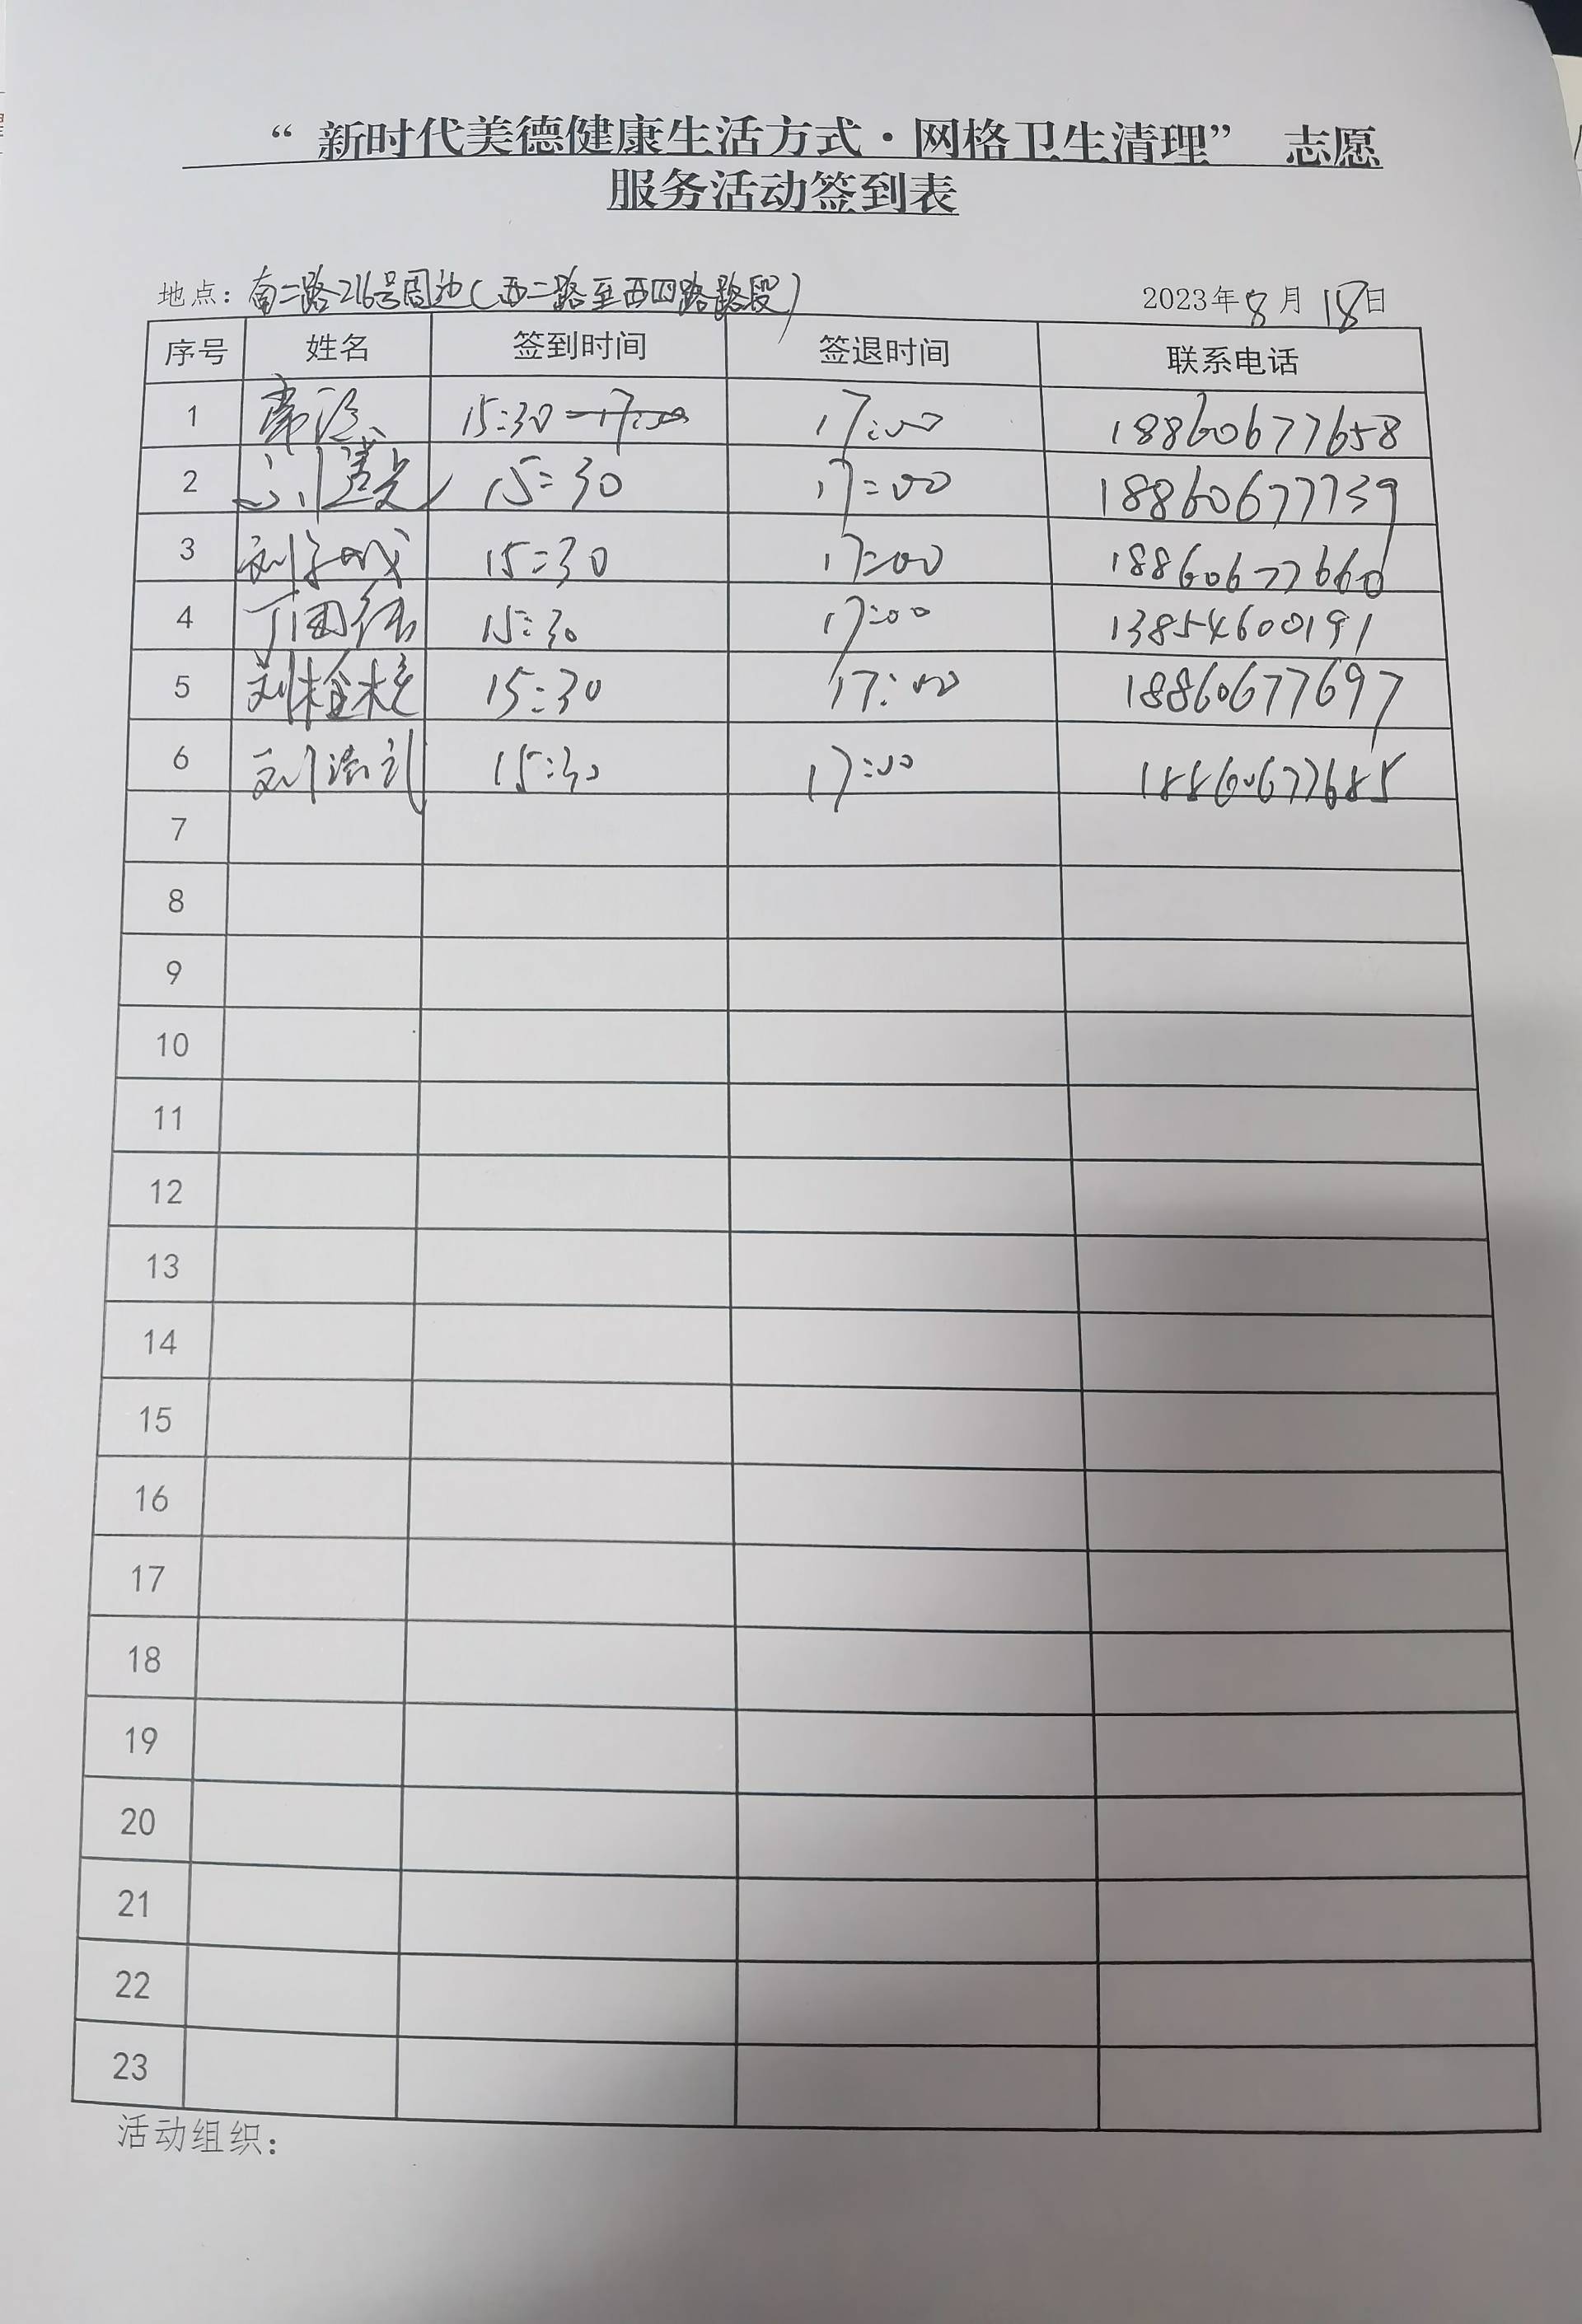 “ 新时代美德健康生活方式·网格卫生清理” 志愿
服务活动签到表
地点：南二路216号周边（西二路至西四路路段） 2023年8月18日
序号 姓名 签到时间 签退时间 联系电话
1 15:30 17:00 17:00 18860677658
2 15:30 17:00 18860677739
3 15:30 17:00 18860677660
4 丁国伟 15:30 17:00 13854600191
5 15:30 17:00 18860677697
6 15:30 17:00 18860677685
7
8
9
10
11
12
13
14
15
16
17
18
19
20
21
22
23
活动组织：